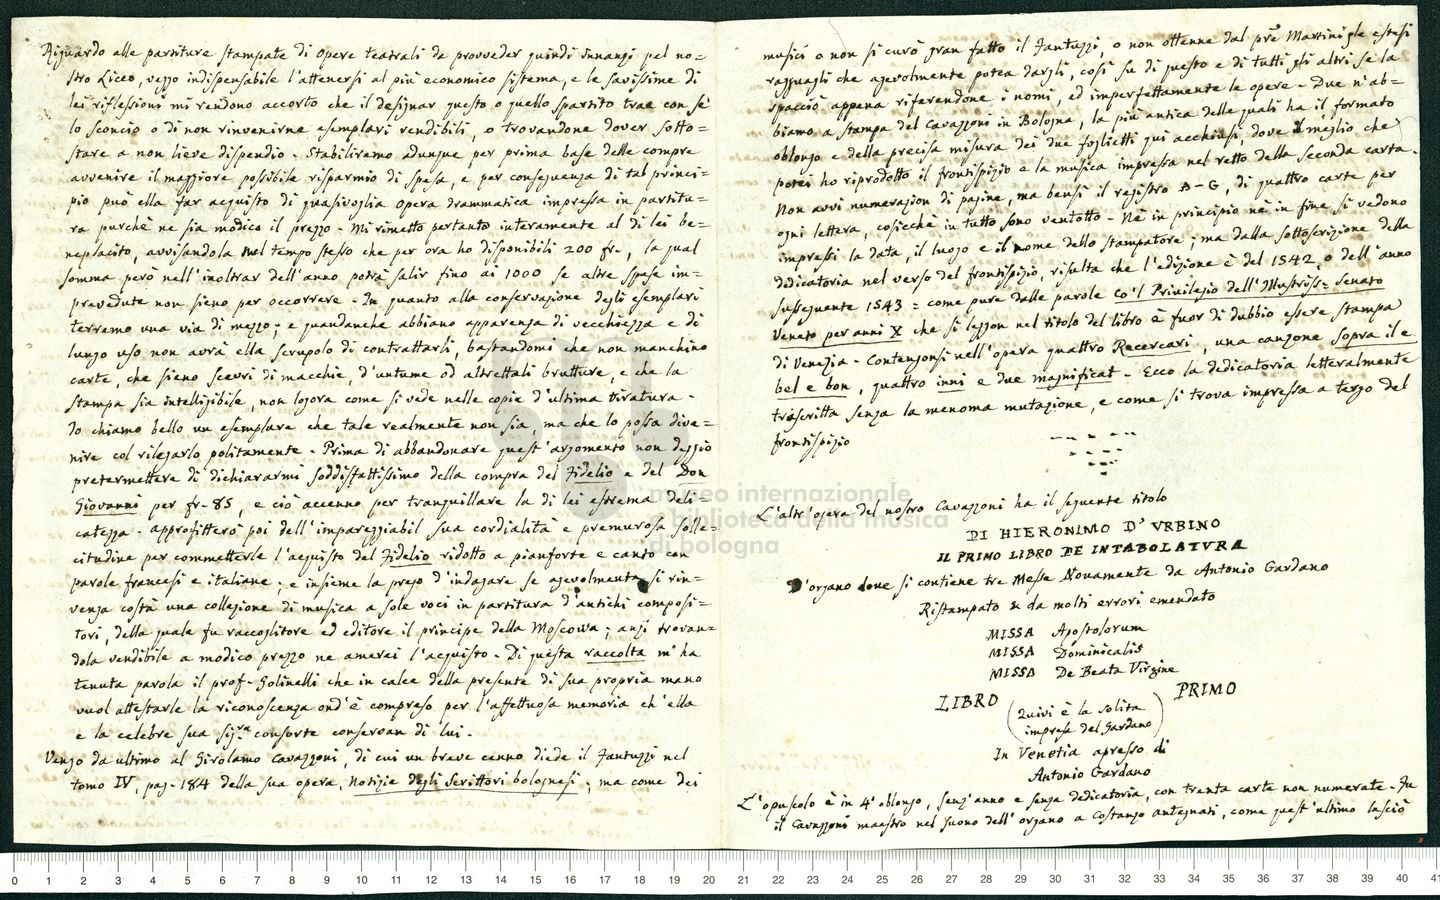 Riguardo alle partiture stampate di opere teatrali da provveder quindi innanzi pel no=
stro Liceo, veggo indispensabile l'attenersi al più economico sistema, e le savissime di
lei riflessioni mi rendono accorto che il designar questo o quello spartito trae con se
lo sconcio o di non rinvenirne esemplari vendibili, o trovandone dover sotto=
stare a non lieve dispendio. Stabiliremo adunque per prima base delle compre
avvenire il maggiore possibile risparmio di spesa, e per conseguenza di tal princi=
pio può ella far acquisto di qualsivoglia opera drammatica impressa in partitu=
ra purchè ne sia modico il prezzo. Mi rimetto pertanto interamente al di lei be=
neplacito, avvisandola nel tempo stesso che per ora ho disponibili 200 fr., la qual
somma però nell'inoltrar dell'anno potrà salir fino ai 1000 se altre spese im=
prevedute non sieno per occorrere. In quanto alla conservazione degli esemplari
terremo una via di mezzo; e quandanche abbiano apparenza di vecchiezza e di
lungo uso non avrà ella scrupolo di contrattarli, bastandomi che non manchino
carte, che sieno scevri di macchie, d'untume od altrettali brutture, e che la
stampa sia intelligibile, non logora come si vede nelle copie d'ultima tiratura.
Io chiamo bello un esemplare che tale realmente non sia, ma che lo possa dive=
nire col rilegarlo politamente. Prima di abbandonare quest'argomento non deggio
pretermettere di dichiararmi soddisfattissimo della compra del Fidelio e del Don
Giovanni per fr. 85, e ciò accenno per tranquillare la di lei estrema deli=
catezza. approfitterò poi dell'impareggiabil sua cordialità e premurosa solle=
citudine per commetterle l'acquisto del Fidelio ridotto a pianforte e canto con
parole francesi e italiane; e insieme la prego d'indagare se agevolmente si rin=
venga costà una collezione di musica a sole voci in partitura d'antichi composi=
tori, della quale fu raccoglitore ed editore il principe della Moscowa; anzi trovan=
dola vendibile a modico prezzo ne amerei l'acquisto. Di questa raccolta m'ha
tenuta parola il prof. Golinelli che in calce della presente di sua propria mano
vuol attestarle la riconoscenza ond'è compreso per l'affettuosa memoria ch'ella
e la celebre sua sig.ra consorte conservan di lui.
Vengo da ultimo al Girolamo Cavazzoni, di cui un breve cenno diede il Fantuzzi nel
tomo IV, pag. 184 della sua opera, Notizie degli Scrittori bolognesi; ma come dei
musici o non si curò gran fatto il Fantuzzi, o non ottenne dal pre Martini gle estesi
ragguagli che agevolmente potea dargli, così su di questo e di tutti gli altri se la
spacciò appena riferendone i nomi, ed imperfettamente le opere. Due n'ab=
biamo a stampa del Cavazzoni in Bologna, la più antica delle quali ha il formato
oblongo e della precisa misura dei due foglietti qui acchiusi, dove il meglio che
potei ho riprodotto il frontispizio e la musica impressa nel retto della seconda carta.
Non avvi numerazion di pagine, ma bensì il registro A–G, di quattro carte per
ogni lettera, cosicchè in tutto sono ventotto. Nè in principio nè in fine si vedono
impressi la data, il luogo e il nome dello stampatore; ma dalla sottoscrizione della
dedicatoria nel verso del frontispizio, risulta che l'edizione è del 1542, o dell'anno
susseguente 1543 = come pure dalle parole Co'l Privilegio dell'Illustriss. Senato
Veneto per anni X che si leggon nel titolo del libro è fuor di dubbio essere stampa
di Venezia. Contengonsi nell'opera quattro Recercari, una canzone sopra il e
bel e bon, quattro inni e due magnificat. Ecco la dedicatoria letteralmente
trascritta senza la menoma mutazione, e come si trova impressa a tergo del
frontispizio
L'altr'opera del nostro Cavazzoni ha il seguente titolo
DI HIERONIMO D'VRBINO
IL PRIMO LIBRO DE INTABOLATVRA
D'organo dove si contiene tre Messe Novamente da Antonio Gardano
Ristampato & da molti errori emendato
MISSA Apostolorum
MISSA Dominicalis
MISSA De Beata Virgine
LIBRO (Quivi è la solita impresa del Gardano) PRIMO
In Venetia apresso di
Antonio Gardano
L'opuscolo è in 4° oblongo, senz'anno e senza dedicatoria, con trenta carte non numerate. Fu
il Cavazzoni maestro nel suono dell'organo a Costanzo antegnati, come quest'ultimo lasciò
museo internazionale
e biblioteca della musica
di bologna
0 1 2 3 4 5 6 7 8 9 10 11 12 13 14 15 16 17 18 19 20 21 22 23 24 25 26 27 28 29 30 31 32 33 34 35 36 37 38 39 40 41